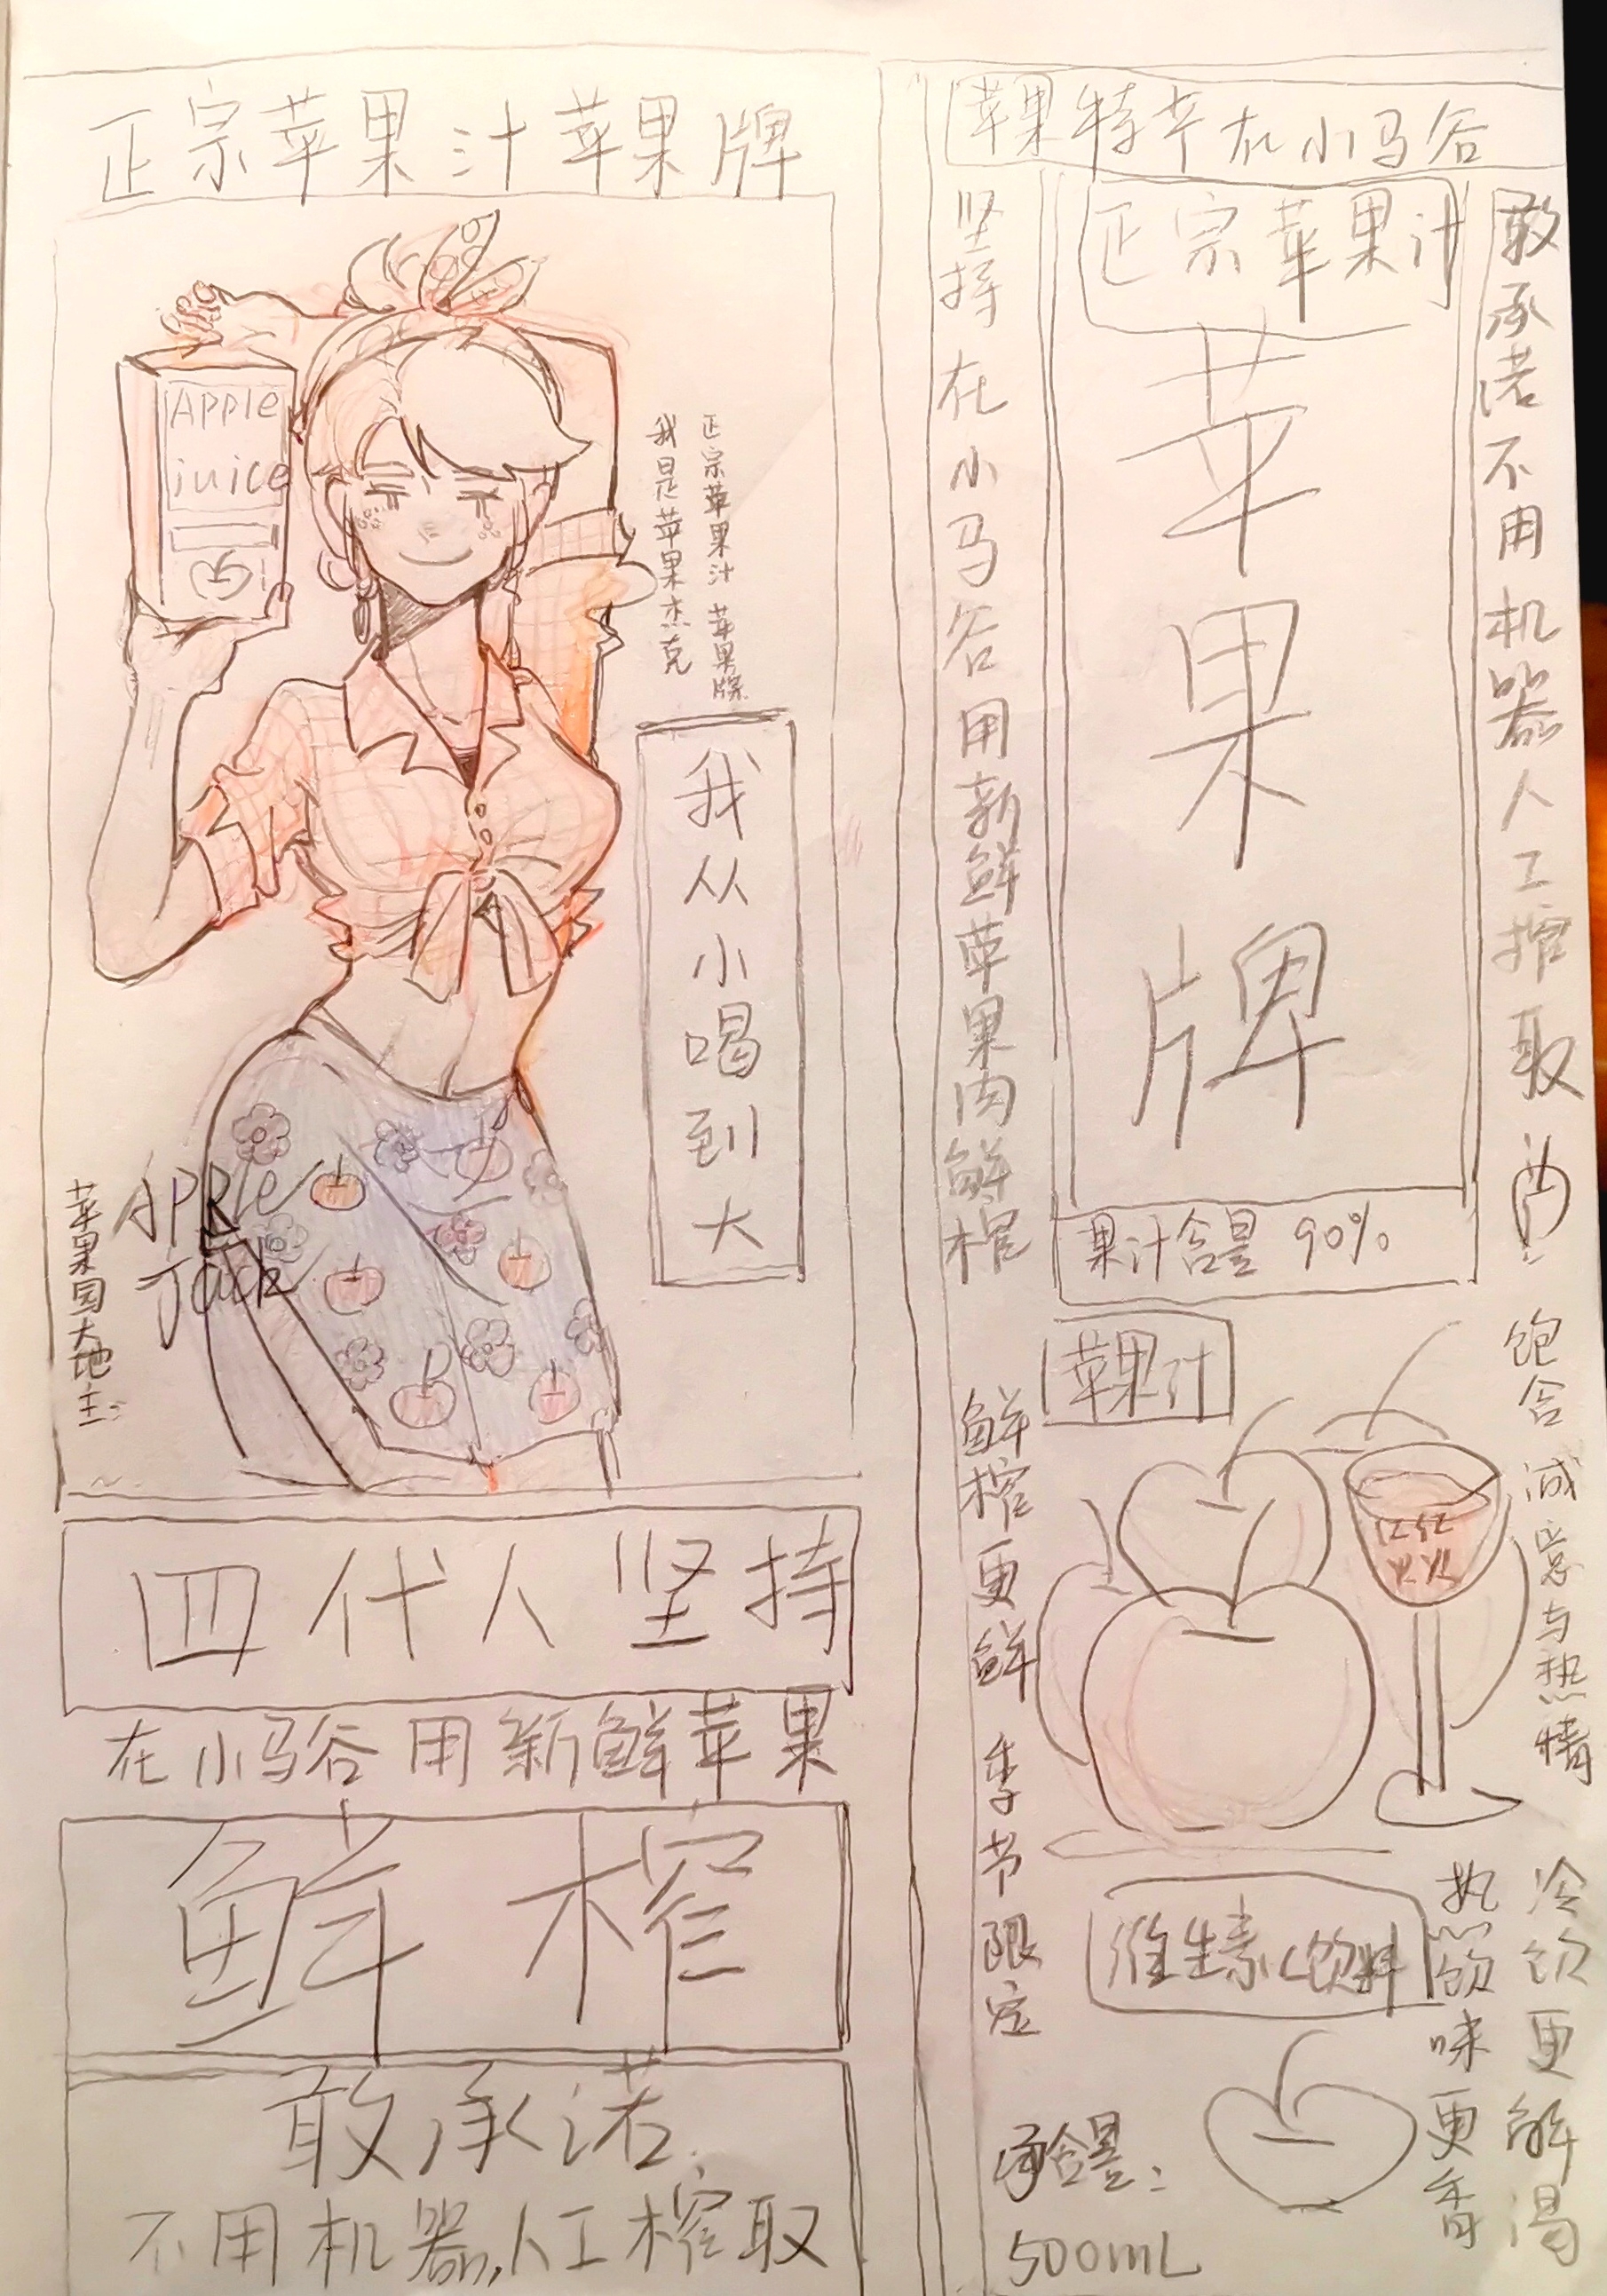 正宗苹果汁苹果牌
Apple
juice
正宗苹果汁 苹果牌
我是苹果杰克
我从小喝到大
Apple
Jack
苹果园大地主
四代人坚持
在小马谷用新鲜苹果
鲜榨
敢承诺
不用机器,人工榨取
苹果特产在小马谷
坚持在小马谷用新鲜苹果肉鲜榨
正宗苹果汁
苹果牌
敢承诺不用机器人工榨取
果汁含量 90%
苹果汁
鲜榨更鲜 季节限定
饱含诚意与热情
维生素C饮料
冷饮更解渴
热饮味更香
净含量:
500mL